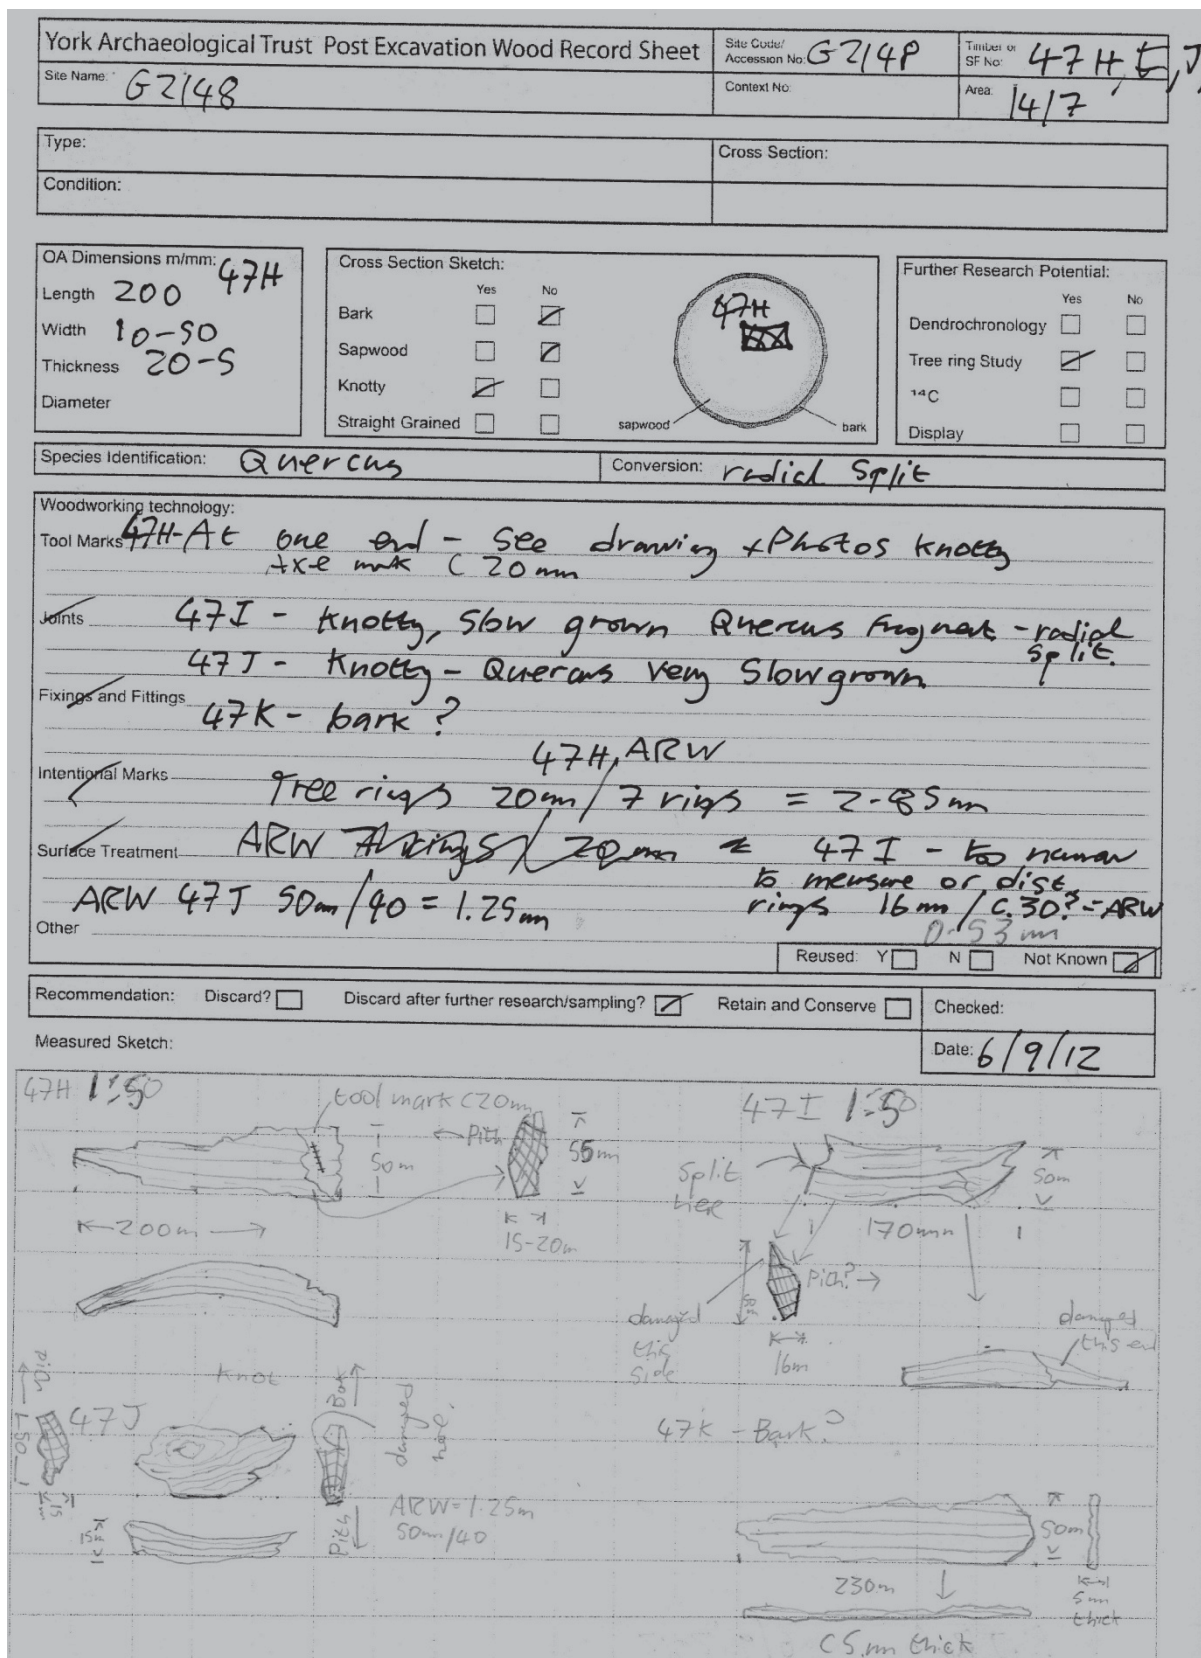 York Archaeological Trust Post Excavation Wood Record Sheet
Site Code/ Accession No: G2148
Timber or SF No: 47H, I, J,
Site Name: G2148
Context No:
Area: 14/7
Type:
Cross Section:
Condition:
OA Dimensions m/mm: 47H
Length 200
Width 10-50
Thickness 20-5
Diameter
Cross Section Sketch:
Yes No
Bark
Sapwood
Knotty
Straight Grained
47H
sapwood
bark
Further Research Potential:
Yes No
Dendrochronology
Tree ring Study
14C
Display
Species Identification: Quercus
Conversion: radial split
Woodworking technology:
Tool Marks 47H-At one end - see drawing + Photos knotty
Axe mark C 20mm
Joints 47I - Knotty, slow grown Quercus fragment - radial
split.
47J - Knotty - Quercus very slow grown
Fixings and Fittings
47K - bark?
47H, ARW
Intentional Marks
Tree rings 20mm / 7 rings = 2.85mm
Surface Treatment ARW 7 rings / 20mm = 47I - too narrow
to measure or dist.
ARW 47J 50mm/40 = 1.25mm
rings 16mm / c.30? = ARW
0.53mm
Other
Reused: Y N Not Known
Recommendation: Discard? Discard after further research/sampling? Retain and Conserve
Checked:
Measured Sketch:
Date: 6/9/12
47H 1:50
tool mark C20mm
Pith
50m
55mm
200m
15-20m
47I 1:50
split here
50m
170mm
Pith? →
damaged this side
16m
damaged this end
Pith
50
47J
Knot
Bark
damaged here.
15m
15m
Pith
ARW = 1.25m
50mm/40
47K - Bark?
50m
230m
5mm thick
C5mm thick